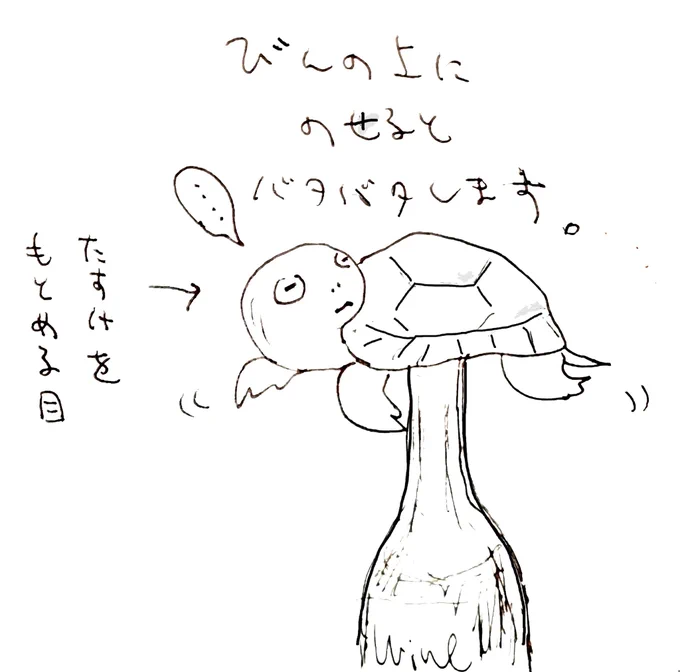 びんの上に
のせると
バタバタします。
.....
たすけを
もとめる目
Wine